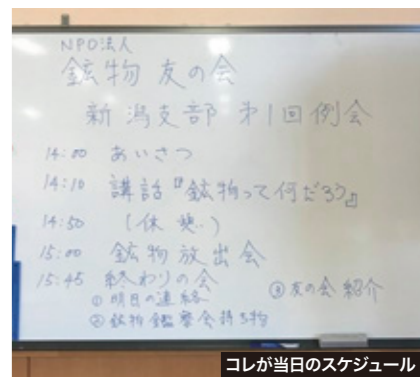 NPO法人
鉱物友の会
新潟支部 第1回例会
14:00 あいさつ
14:10 講話『鉱物って何だろう』
14:50 (休憩)
15:00 鉱物放出会
15:45 終わりの会
①明日の連絡 ③友の会紹介
②鉱物鑑察会持ち物
コレが当日のスケジュール